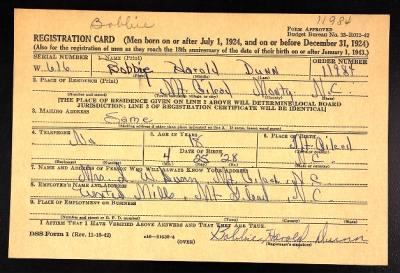 Bobbie
11984
REGISTRATION CARD—(Men born on or after July 1, 1924, and on or before December 31, 1924)
FORM APPROVED
Budget Bureau No. 33-R012-42
(Also for the registration of men as they reach the 18th anniversary of the date of their birth on or after January 1, 1943.)
SERIAL NUMBER
1. NAME (Print)
ORDER NUMBER
W 616
Bobbie Harold Dunn
11984
(First) (Middle) (Last)
2. PLACE OF RESIDENCE (Print)
Mt Gilead Montg. N.C.
[THE PLACE OF RESIDENCE GIVEN ON LINE 2 ABOVE WILL DETERMINE LOCAL BOARD
JURISDICTION; LINE 2 OF REGISTRATION CERTIFICATE WILL BE IDENTICAL]
3. MAILING ADDRESS
Same
[Mailing address if other than place indicated on line 2. If same, insert word same]
4. TELEPHONE
5. AGE IN YEARS
6. PLACE OF BIRTH
No
18
Mt Gilead
DATE OF BIRTH
4 25 28
N.C.
(Exchange) (Number) (Mo.) (Day) (Yr.) (State or country)
7. NAME AND ADDRESS OF PERSON WHO WILL ALWAYS KNOW YOUR ADDRESS
Dunn Mt Gilead, N.C.
8. EMPLOYER'S NAME AND ADDRESS
Mills, Mt Gilead, N.C.
9. PLACE OF EMPLOYMENT OR BUSINESS
(Number and street or R. F. D. number) (Town) (County) (State)
I AFFIRM THAT I HAVE VERIFIED ABOVE ANSWERS AND THAT THEY ARE TRUE.
DSS Form 1 (Rev. 11-16-42)
(OVER)
Bobbie Harold Dunn
(Registrant's signature)